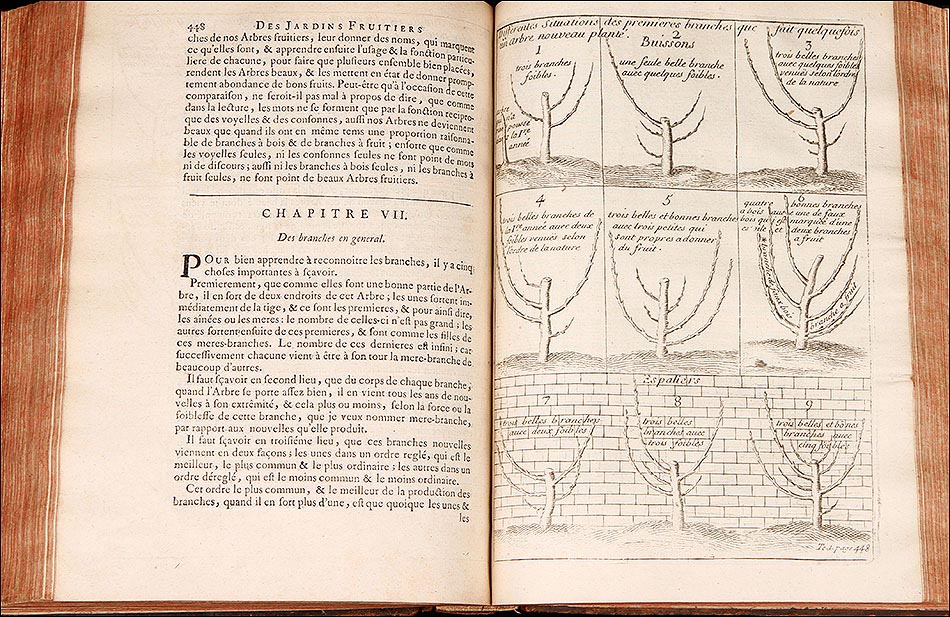 448 DES JARDINS FRUITIERS
ches de nos Arbres fruitiers, leur donner des noms, qui marquent
ce qu'elles font, & apprendre ensuite l'usage & la fonction particu-
liere de chacune, pour faire que plusieurs ensemble bien placées,
rendent les Arbres beaux, & les mettent en état de donner promp-
tement abondance de bons fruits. Peut-être qu'à l'occasion de cette
comparaison, ne seroit-il pas mal à propos de dire, que comme
dans la lecture, les mots ne se forment que par la fonction recipro-
que des voyelles & des consonnes, aussi nos Arbres ne deviennent
beaux que quand ils ont en même tems une proportion raisonna-
ble de branches à bois & de branches à fruit; ensorte que comme
les voyelles seules, ni les consonnes seules ne font point de mots
ni de discours; aussi ni les branches à bois seules, ni les branches à
fruit seules, ne font point de beaux Arbres fruitiers.
CHAPITRE VII.
Des branches en general.
POUR bien apprendre à reconnoitre les branches, il y a cinq
choses importantes à sçavoir.
Premierement, que comme elles font une bonne partie de l'Ar-
bre, il en sort de deux endroits de cet Arbre; les unes sortent im-
médiatement de la tige, & ce sont les premieres, & pour ainsi dire,
les aînées ou les meres: le nombre de celles-ci n'est pas grand; les
autres sortent ensuite de ces premieres, & sont comme les filles de
ces meres-branches. Le nombre de ces dernieres est infini; car
successivement chacune vient à être à son tour la mere-branche de
beaucoup d'autres.
Il faut sçavoir en second lieu, que du corps de chaque branche,
quand l'Arbre se porte assez bien, il en vient tous les ans de nou-
velles à son extrémité, & cela plus ou moins, selon la force ou la
foiblesse de cette branche, que je veux nommer mere-branche,
par rapport aux nouvelles qu'elle produit.
Il faut sçavoir en troisiéme lieu, que ces branches nouvelles
viennent en deux façons; les unes dans un ordre reglé, qui est le
meilleur, le plus commun & le plus ordinaire; les autres dans un
ordre déreglé, qui est le moins commun & le moins ordinaire.
Cet ordre le plus commun, & le meilleur de la production des
branches, quand il en sort plus d'une, est que quoique les unes &
les
Differentes Situations des premieres branches que fait quelquefois
un arbre nouveau planté.
Buissons
1
trois branches
foibles.
2
une seule belle branche
avec quelques foibles.
3
trois belles branches
avec quelques foibles
venuës selon l'ordre
de la nature
la 1re
année
4
trois belles branches de
la 1re année avec deux
foibles venues selon
l'ordre de la nature.
5
trois belles et bonnes branches
avec trois petites qui
sont propres a donner
du fruit.
6
quatre bonnes branches
a bois avec une de faux
bois qui est marquée d'une
et deux branches
a fruit
branche de faux bois
branche a fruit
Espaliers
7
trois belles branches
avec deux foibles
8
trois belles
branches avec
trois foibles
9
trois belles et bones
branches avec
cinq foibles
To. 1. page 448